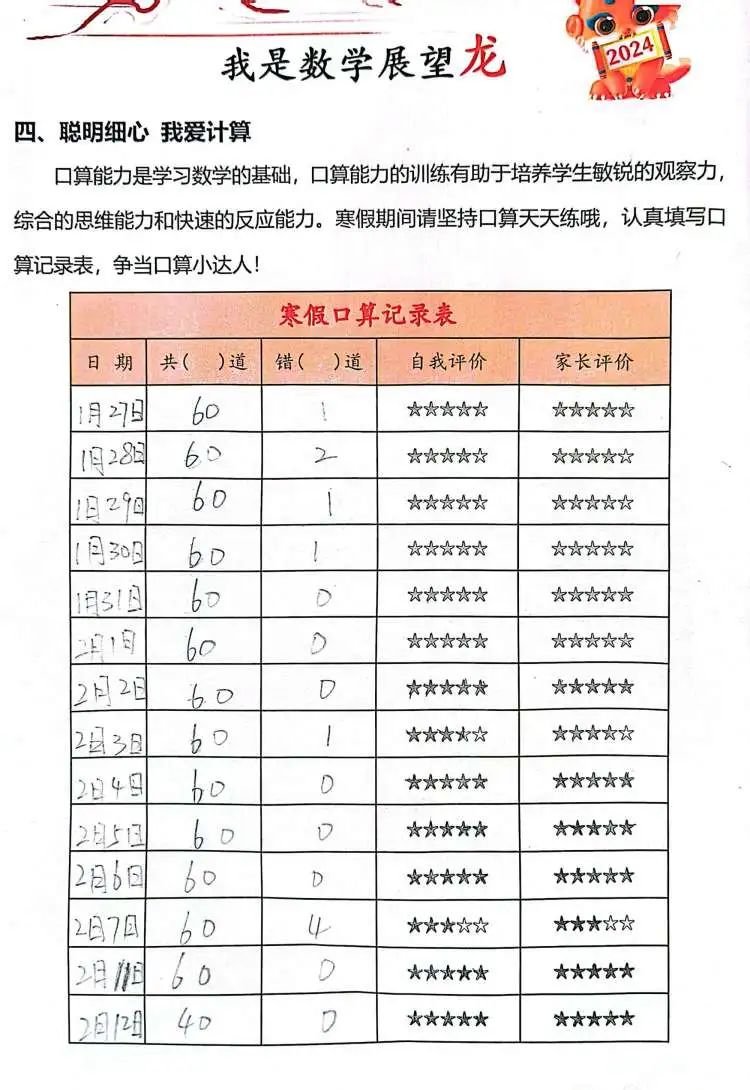 2024
我是数学展望龙
四、聪明细心 我爱计算
口算能力是学习数学的基础，口算能力的训练有助于培养学生敏锐的观察力，
综合的思维能力和快速的反应能力。寒假期间请坚持口算天天练哦，认真填写口
算记录表，争当口算小达人！
寒假口算记录表
日 期 共( )道 错( )道 自我评价 家长评价
1月27日 60 1 ☆☆☆☆☆ ☆☆☆☆☆
1月28日 60 2 ☆☆☆☆☆ ☆☆☆☆☆
1月29日 60 1 ☆☆☆☆☆ ☆☆☆☆☆
1月30日 60 1 ☆☆☆☆☆ ☆☆☆☆☆
1月31日 60 0 ☆☆☆☆☆ ☆☆☆☆☆
2月1日 60 0 ☆☆☆☆☆ ☆☆☆☆☆
2月2日 60 0 ☆☆☆☆☆ ☆☆☆☆☆
2月3日 60 1 ☆☆☆☆☆ ☆☆☆☆☆
2月4日 60 0 ☆☆☆☆☆ ☆☆☆☆☆
2月5日 60 0 ☆☆☆☆☆ ☆☆☆☆☆
2月6日 60 0 ☆☆☆☆☆ ☆☆☆☆☆
2月7日 60 4 ☆☆☆☆☆ ☆☆☆☆☆
2月11日 60 0 ☆☆☆☆☆ ☆☆☆☆☆
2月12日 40 0 ☆☆☆☆☆ ☆☆☆☆☆